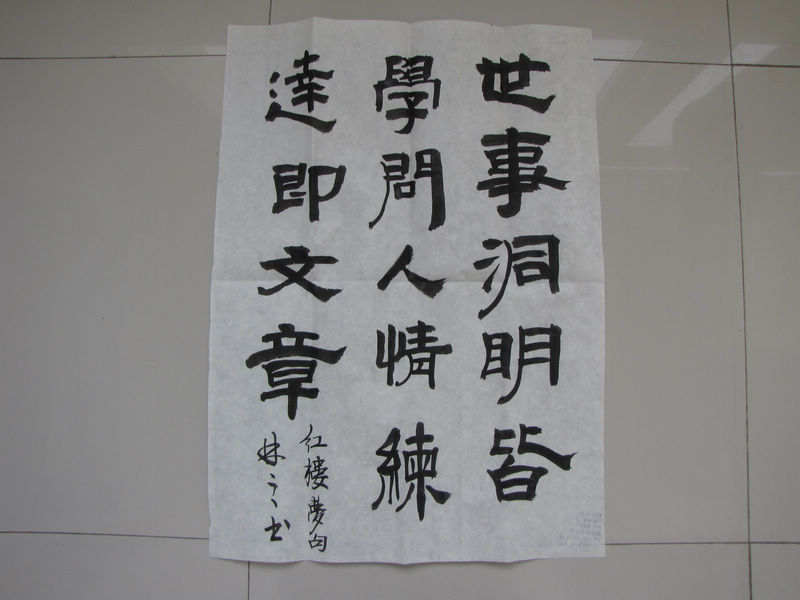 世事洞明皆
學問人情練
達即文章
紅樓夢句